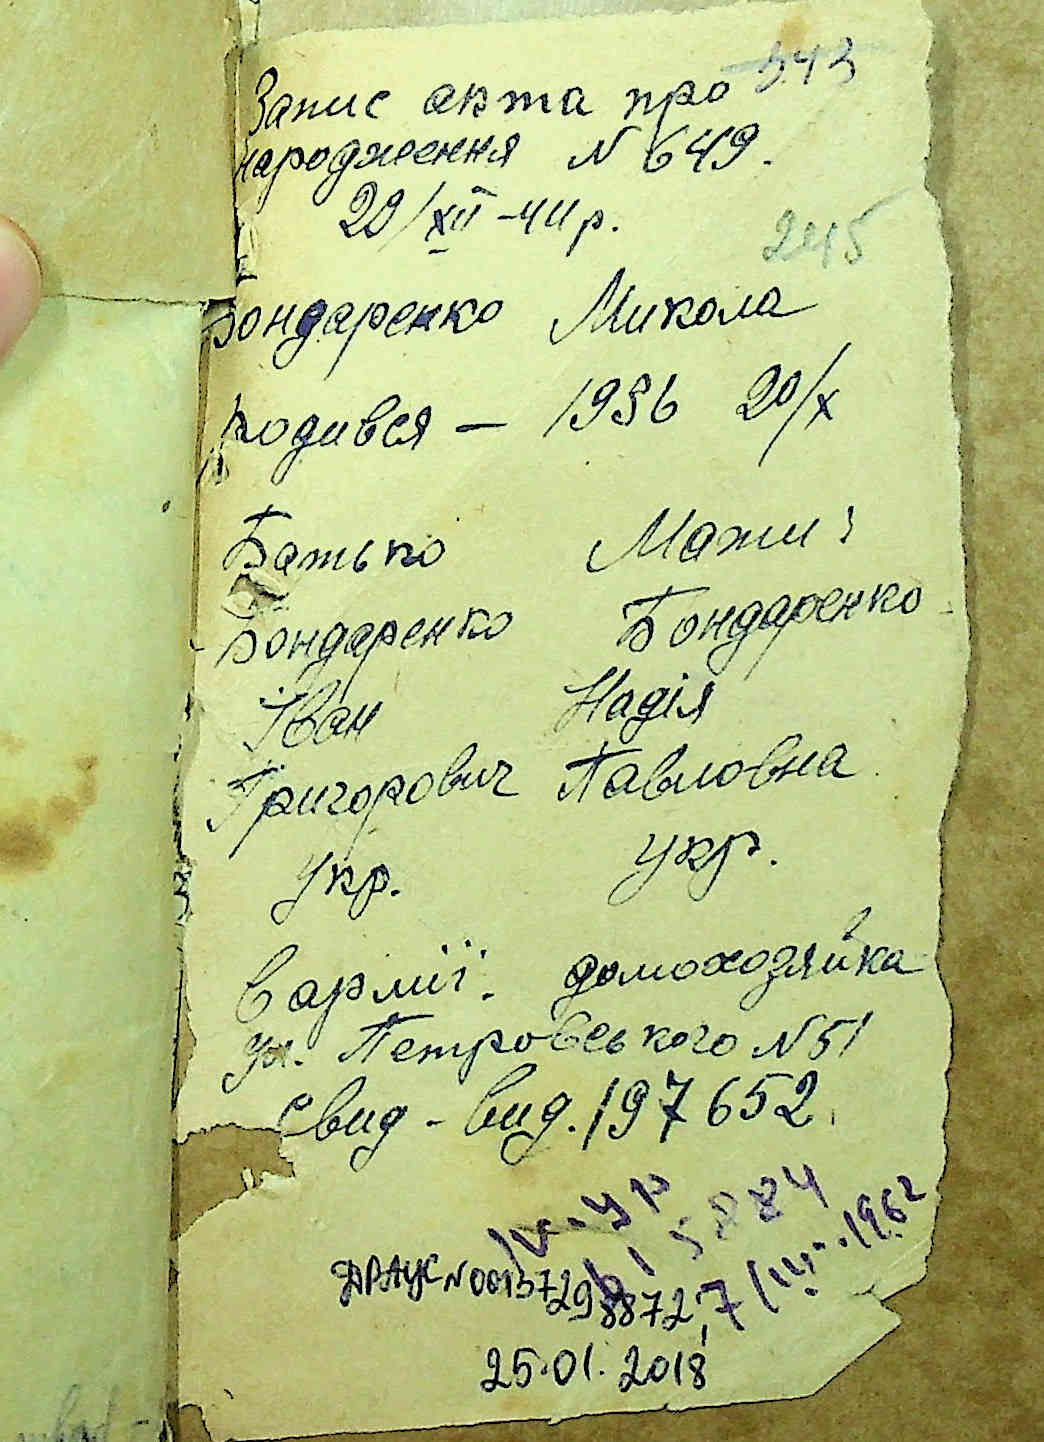 Запис акта про 343
народження N 649.
20/XII -44 р.
245
Бондаренко Микола
родився — 1936 20/X
Батько Мати:
Бондаренко Бондаренко
Іван Надія
Григорович Павловна
укр. укр.
в армії. домохозяйка
ул. Петровського N 51
Свид - вид. 197652
5884
7/III-1962
ДРАЦС N 00137298872,
25.01.2018